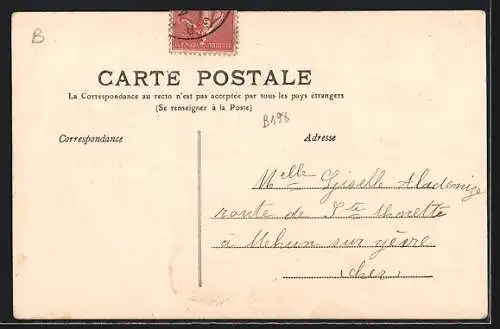 B
CARTE POSTALE
La Correspondance au recto n'est pas acceptée par tous les pays étrangers
(Se renseigner à la Poste)
B198
Correspondance
Adresse
Melle Giselle Alademize
route de Ste Thorette
à Mehun sur yèvre
Cher